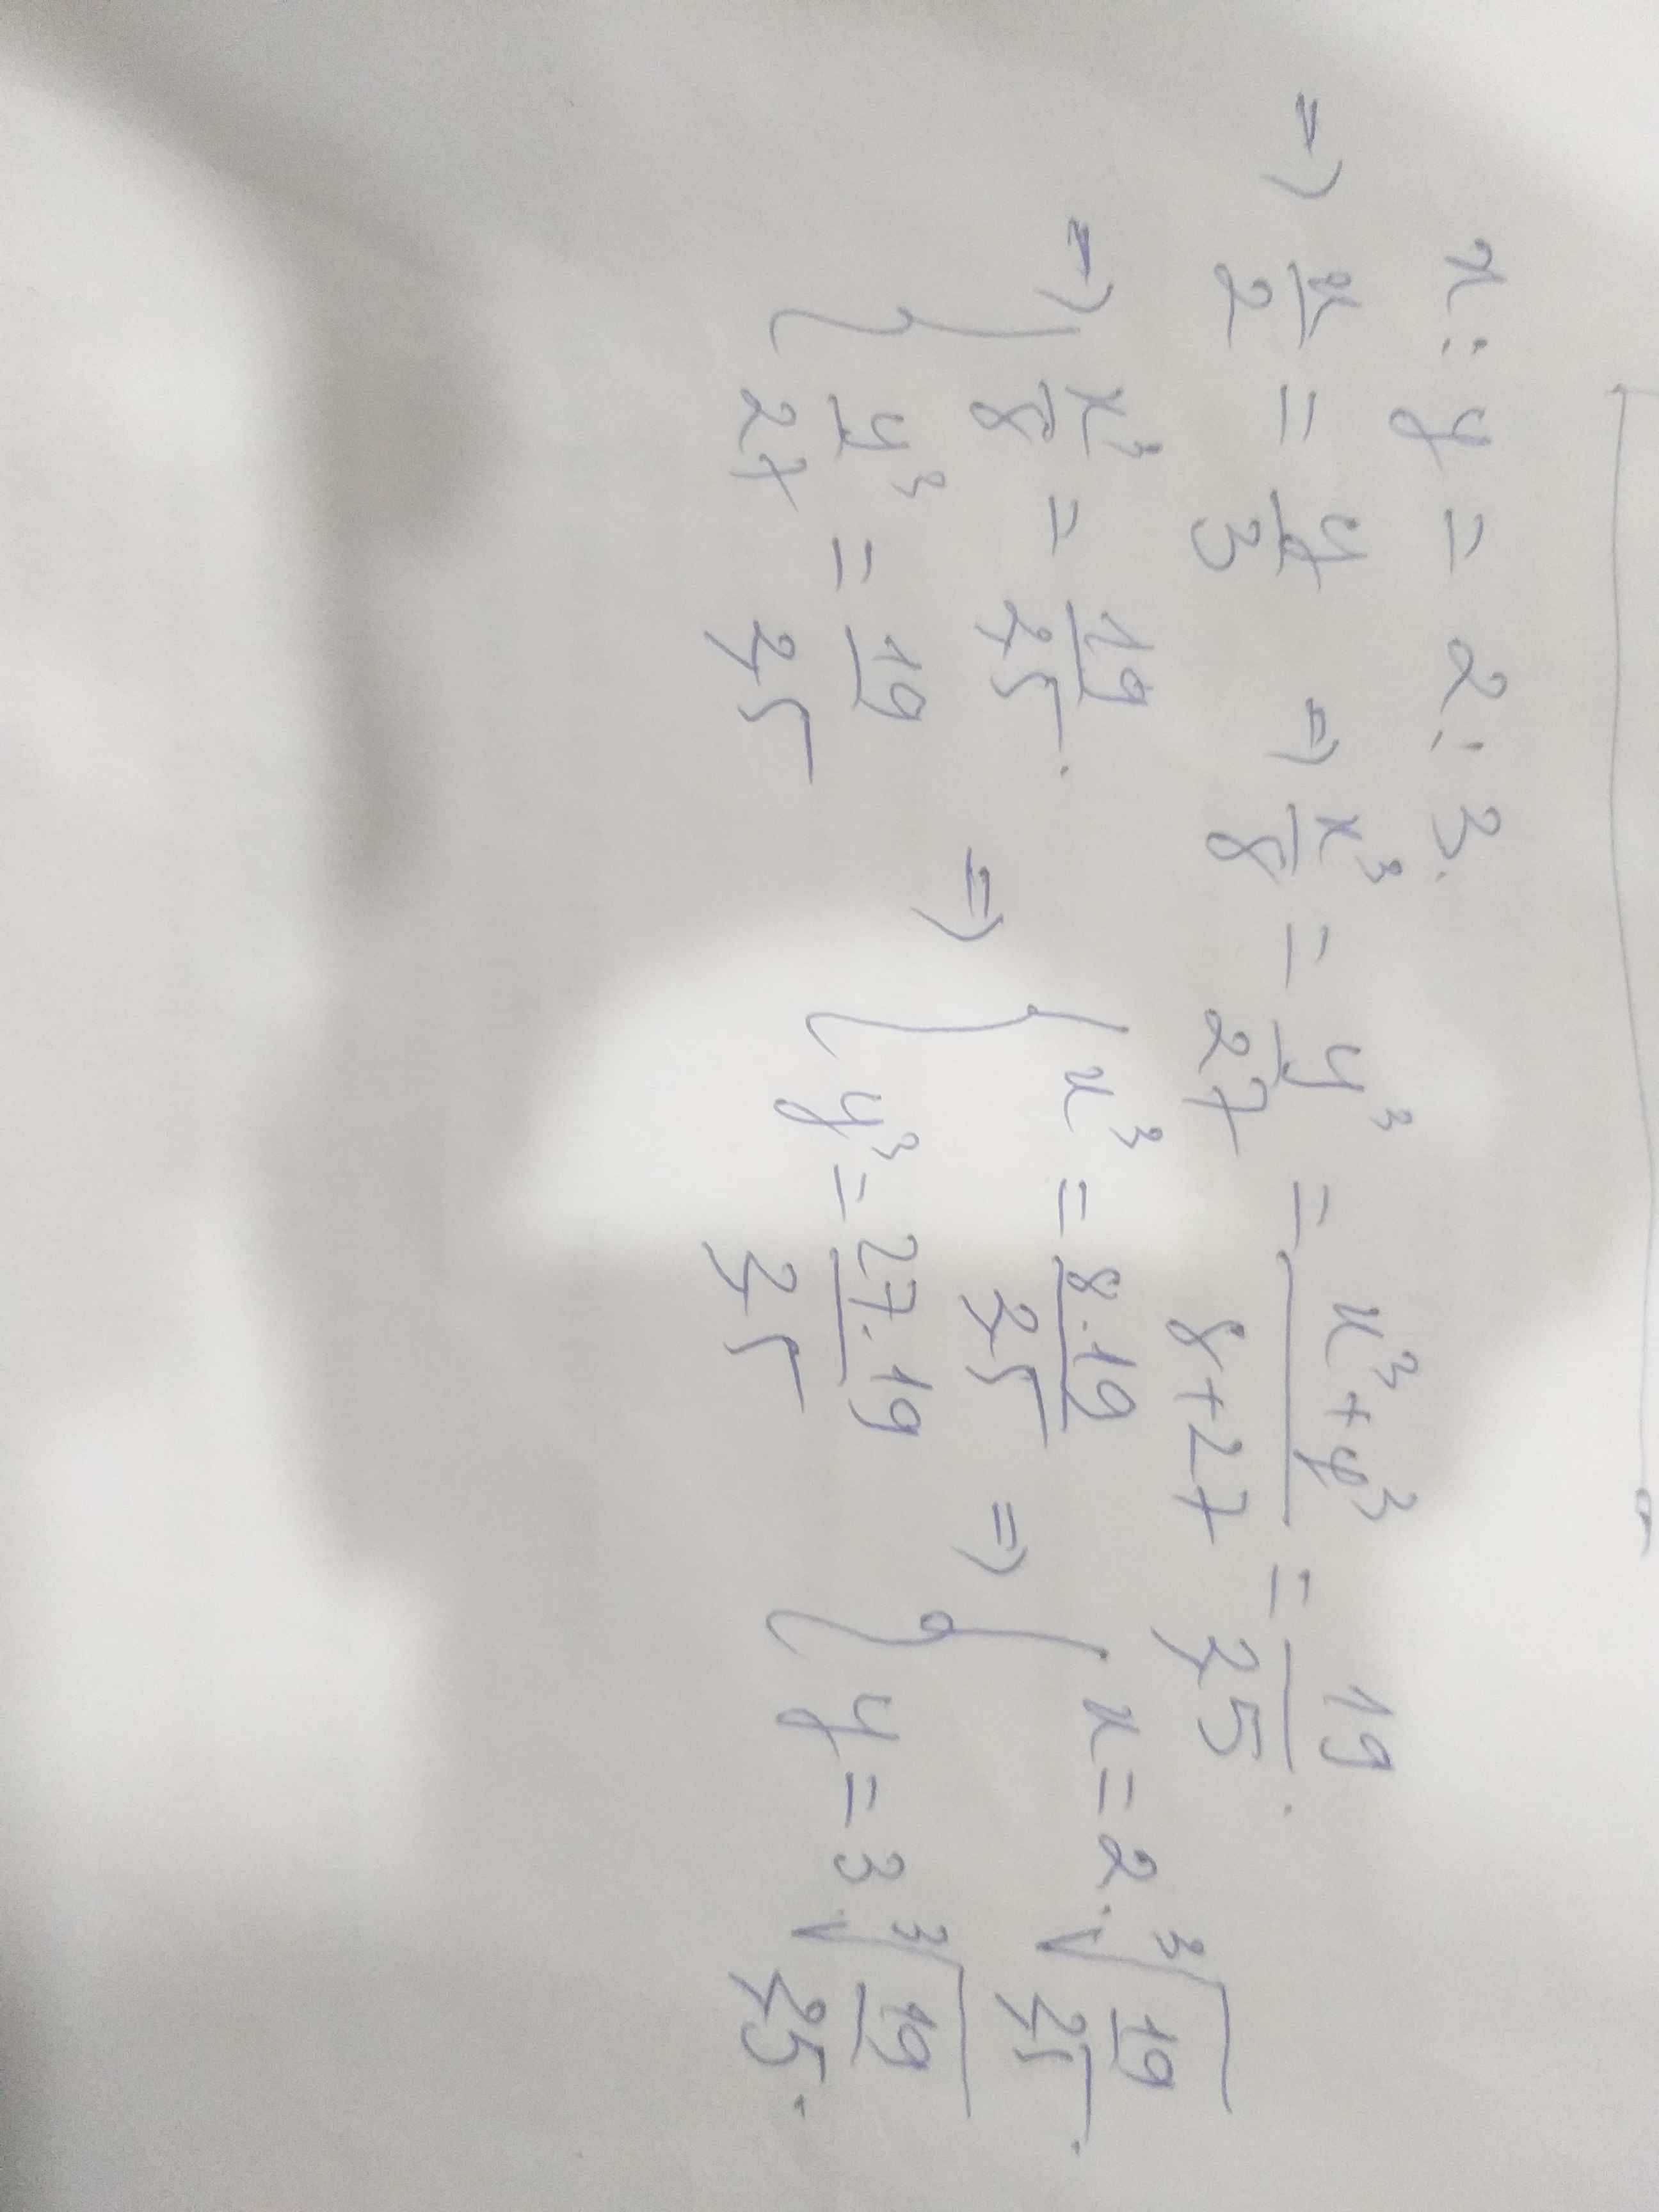 x : y = 2 : 3.
=> x/2 = y/3 => x³/8 = y³/27 = (x³ + y³)/(8 + 27) = 19/35.
=> { x³/8 = 19/35. => { x³ = 8.19/35 => { x = 2.∛(19/35).
y³/27 = 19/35 y³ = 27.19/35 y = 3.∛(19/35).